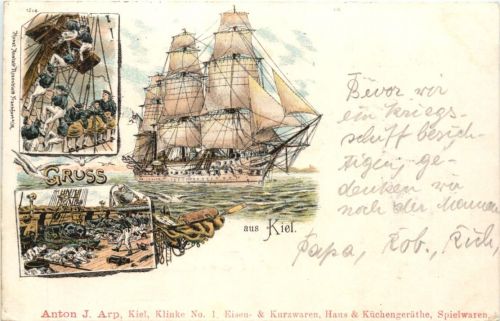 GRUSS
aus Kiel.
Bevor wir
ein Kriegs-
schiff besich-
tigen, ge-
denken wir
noch der Mama
Papa, Rob., Rich,
Anton J. Arp, Kiel, Klinke No. 1. Eisen- & Kurzwaren, Haus & Küchengeräthe, Spielwaren.